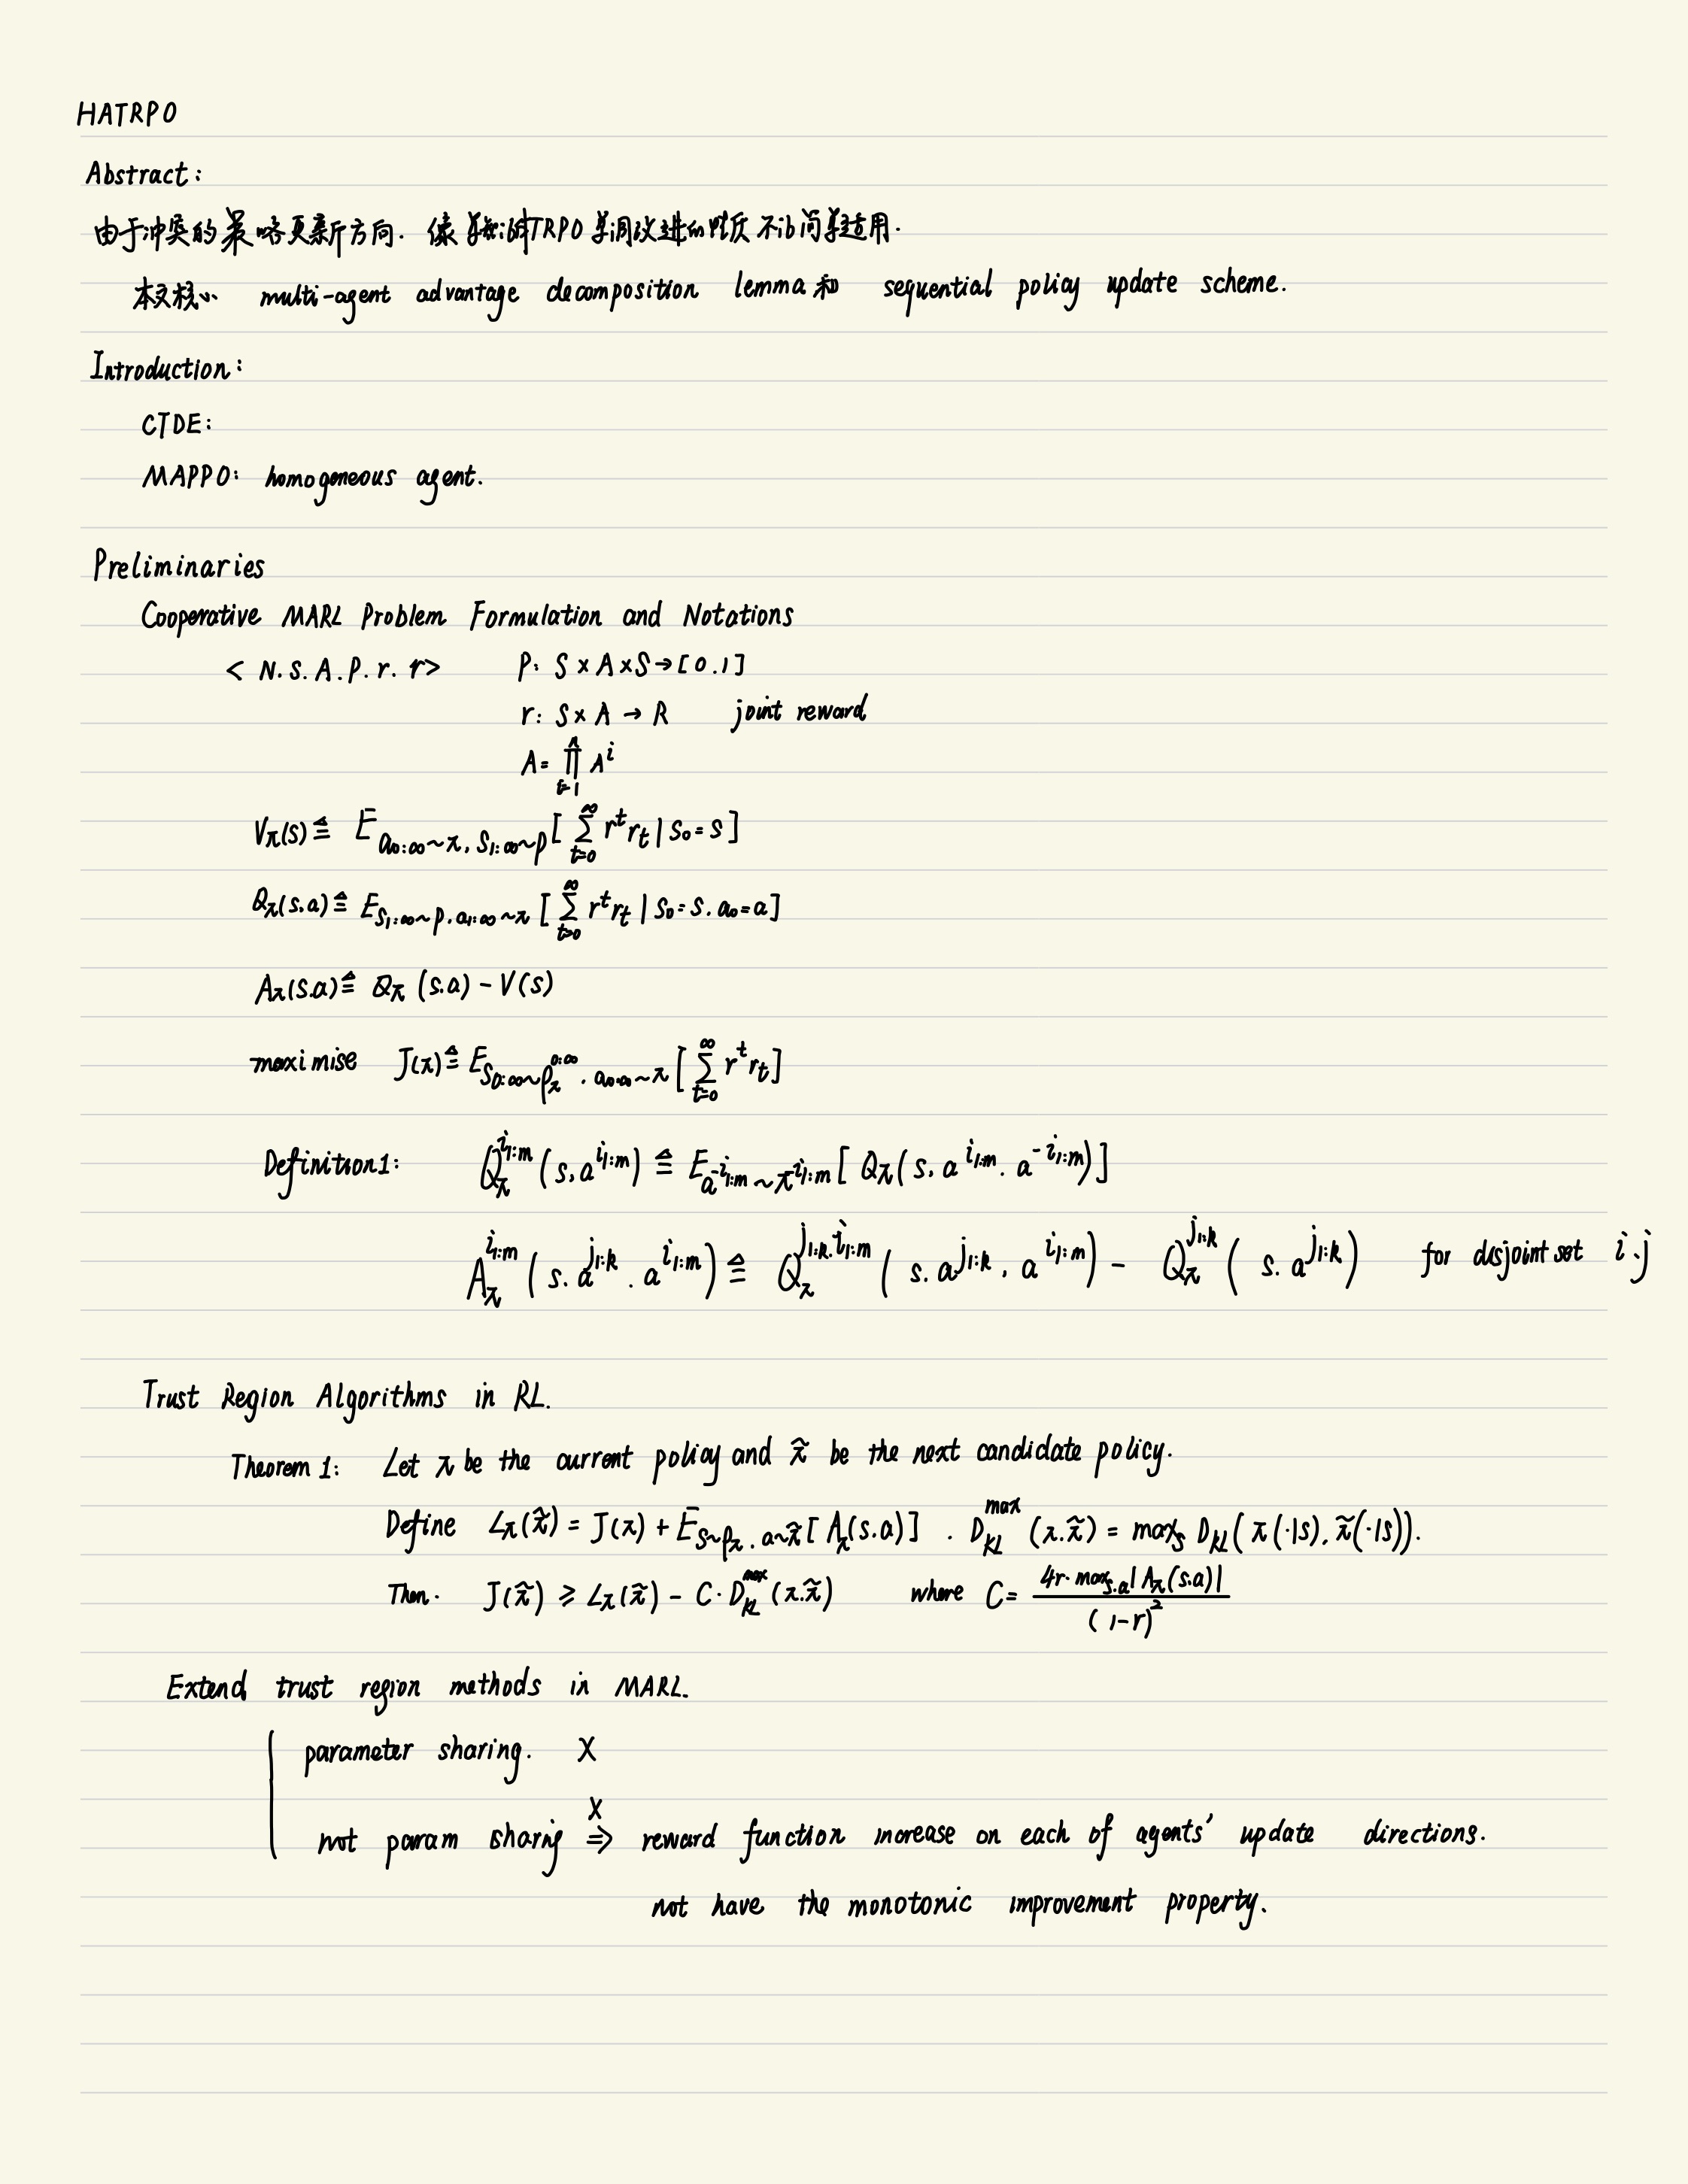 HATRPO
Abstract:
由于冲突的策略更新方向. 像 TRPO 单调改进的性质 不 简单适用.
本文核心 multi-agent advantage decomposition lemma 和 sequential policy update scheme.
Introduction:
CTDE:
MAPPO: homogeneous agent.
Preliminaries
Cooperative MARL Problem Formulation and Notations
< N. S. A. P. r. r> P: S × A × S → [0.1]
r: S × A → R joint reward
A = ∏_{t=1}^{n} A^i
V_π(s) ≜ E_{a_{0:∞}~π, s_{1:∞}~p} [ ∑_{t=0}^{∞} r^t r_t | s_0 = s ]
Q_π(s.a) ≜ E_{s_{1:∞}~p. a_{1:∞}~π} [ ∑_{t=0}^{∞} r^t r_t | s_0 = s. a_0 = a ]
A_π(s.a) ≜ Q_π (s.a) - V(s)
maximise J(π) ≜ E_{s_{0:∞}~ρ_π^{0:∞}. a_{0:∞}~π} [ ∑_{t=0}^{∞} r^t r_t ]
Definition 1: Q_π^{i_{1:m}} (s, a^{i_{1:m}}) ≜ E_{a^{-i_{1:m}}~π^{-i_{1:m}}} [ Q_π (s, a^{i_{1:m}}. a^{-i_{1:m}}) ]
A_π^{i_{1:m}} (s. a^{j_{1:k}}. a^{i_{1:m}}) ≜ Q_π^{j_{1:k}.i_{1:m}} (s. a^{j_{1:k}}, a^{i_{1:m}}) - Q_π^{j_{1:k}} (s. a^{j_{1:k}}) for disjoint set i.j
Trust Region Algorithms in RL.
Theorem 1: Let π be the current policy and π̃ be the next candidate policy.
Define L_π(π̃) = J(π) + E_{s~ρ_π. a~π̃} [ A_π(s.a) ] . D_{KL}^{max} (π.π̃) = max_s D_{KL} ( π(·|s), π̃(·|s)).
Then. J(π̃) ≥ L_π(π̃) - C · D_{KL}^{max} (π.π̃) where C = \frac{4r · max_{s.a} |A_π(s.a)|}{(1-r)^2}
Extend trust region methods in MARL.
parameter sharing. X
X
not param sharing ⇒ reward function increase on each of agents' update directions.
not have the monotonic improvement property.